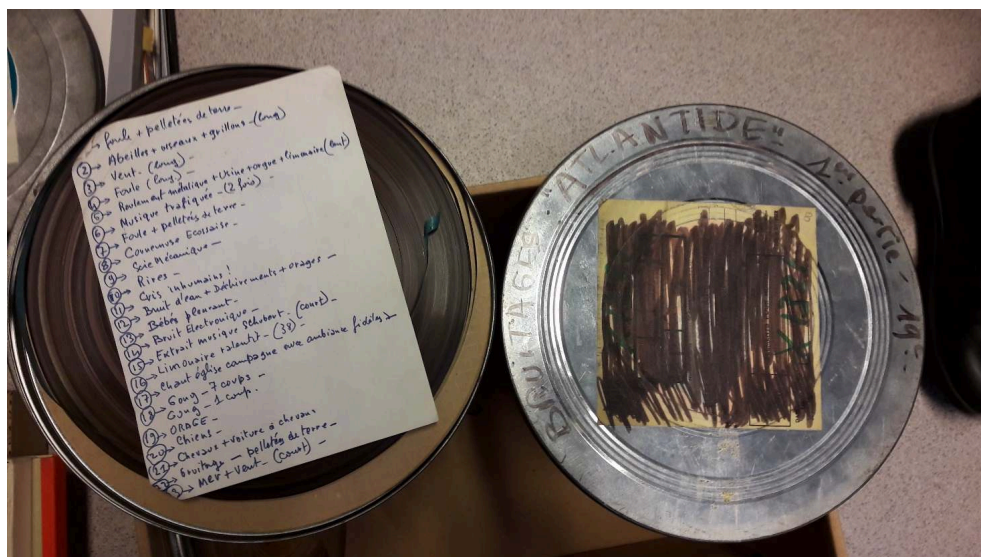 → foule + pelletées de terre –
② → Abeilles + oiseaux + grillons – (long)
③ → Vent. (long) –
④ → Foule (long) –
Roulement métalique + Usine + orgue + limonaire (court)
⑤ → Musique trafiquée – (2 fois) –
⑥ → Foule + pelletés de terre –
⑦ → Cornemuse Ecossaise –
⑧ → Scie Mécanique –
⑨ → Rires –
⑩ → Cris inhumains !
⑪ → Bruit d'eau + Déchirements + orages –
⑫ → Bébés pleurant –
⑬ → Bruit Electronique –
⑭ → Extrait musique Schubert. (court) –
⑮ → Limonaire ralenti – (38) –
⑯ → Chant église campagne avec ambiance fidèles
⑰ → Gong – 7 coups –
⑱ → Gong – 1 coup.
⑲ → ORAGE –
⑳ → Chiens –
㉑ → Chevaux + voiture à chevaux
Bruitage – pelletés de terre –
→ Mer + Vent – (court) –
BRUITAGES "ATLANTIDE" 1ère partie – 19